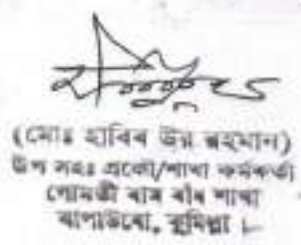 (মোঃ হাবিব উর রহমান)
উপ সহঃ প্রকৌ/শাখা কর্মকর্তা
গোমতী বাম বাঁধ শাখা
বাপাউবো, কুমিল্লা।